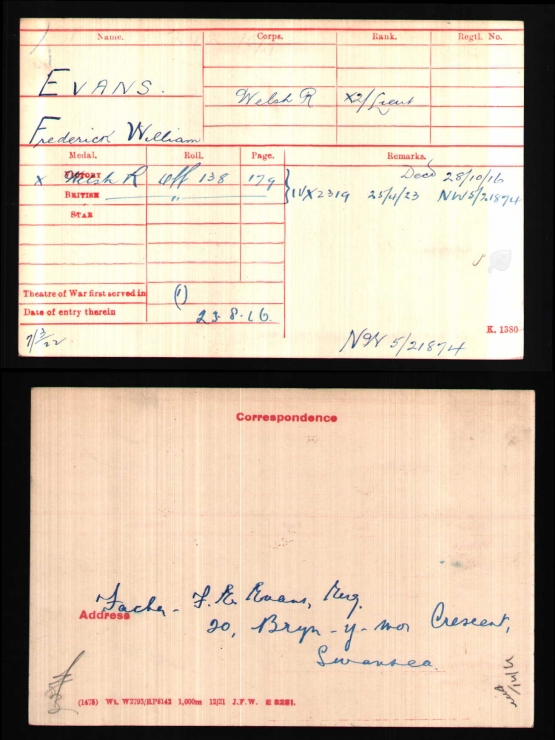 Name. Corps. Rank. Regtl. No.
EVANS.
Welsh R X2/Lieut
Frederick William
Medal. Roll. Page. Remarks.
VICTORY X Welsh R Off 138 179 Decd 28/10/16
BRITISH " IVX2319 25/4/23 NW5/21874
STAR
Theatre of War first served in (1)
Date of entry therein 23.8.16 K. 1380
NW 5/21874
Correspondence
Father - F. E. Evans, Esq.
Address 20, Bryn-y-mor Crescent,
Swansea
(1475) Wt. W2793/RP6142 1,000m 12/21 J.F.W. E 3281.